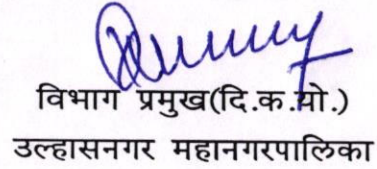 विभाग प्रमुख(दि.क.यो.)
उल्हासनगर महानगरपालिका